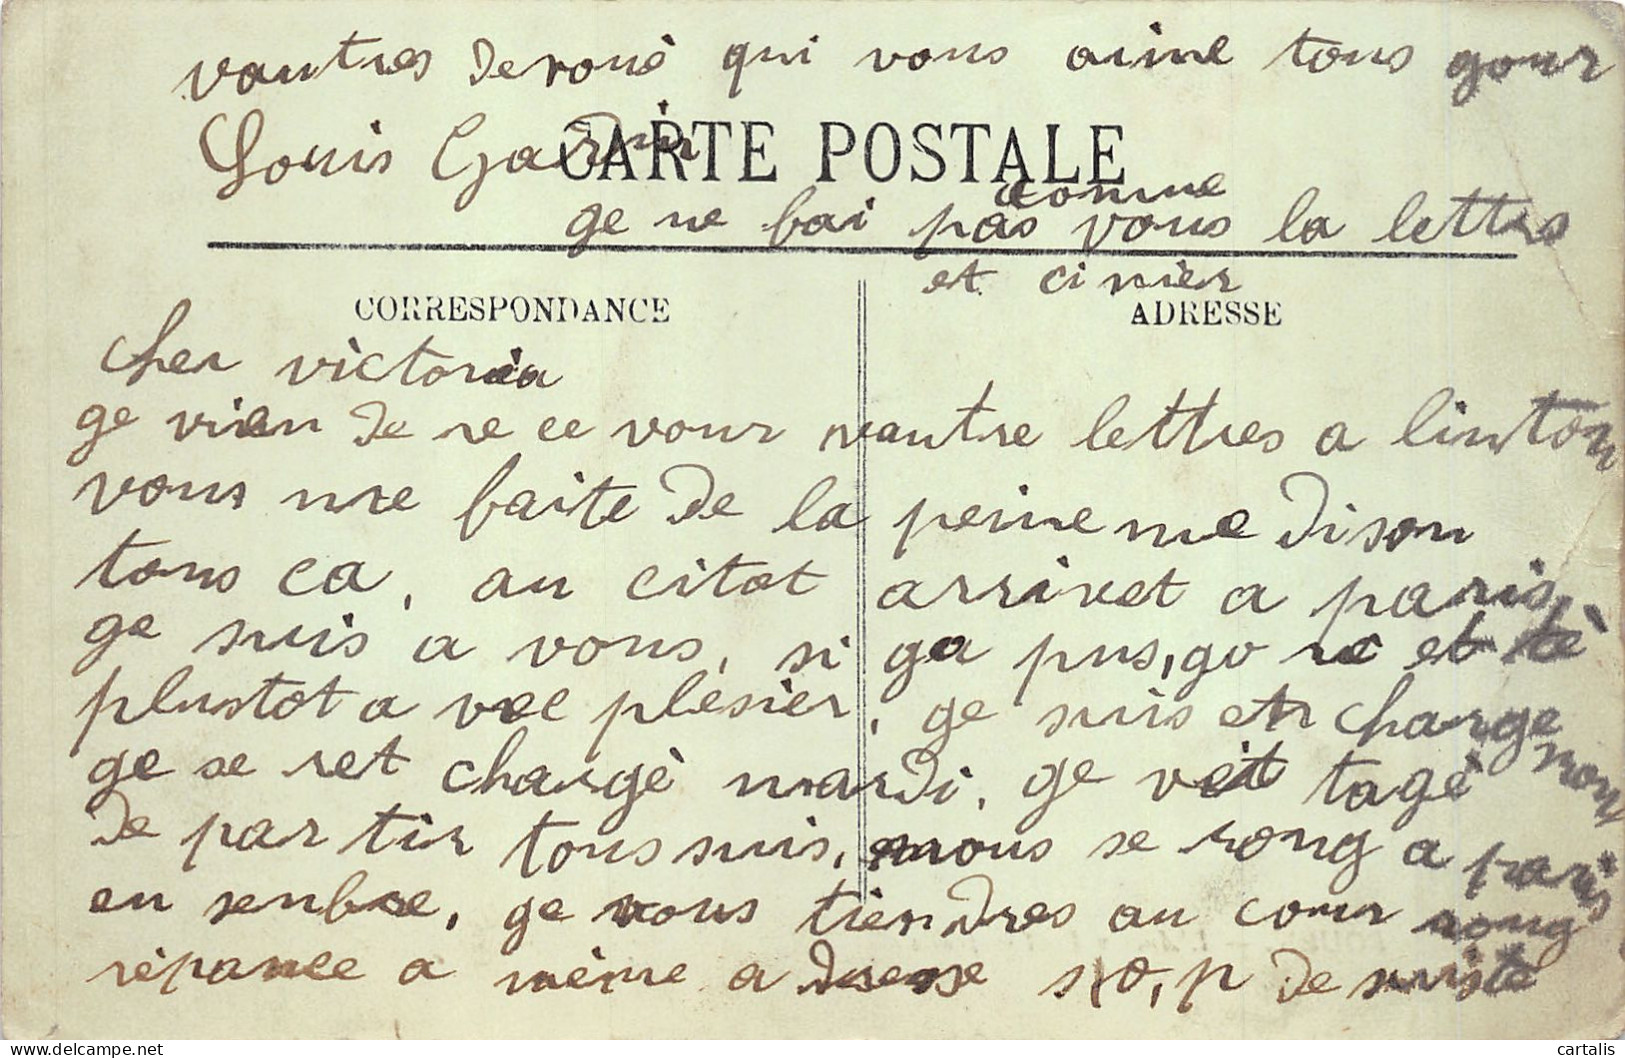 vautres devoué qui vous aime tous gour
Louis Gardin
CARTE POSTALE
comme
ge ne fai pas vous la lettrs
et cinier
CORRESPONDANCE
ADRESSE
Cher victoria
ge vien de re ce vour vautre lettres a linston
vous me faite de la peine me dison
tous ca, au citot arrivet a paris,
ge suis a vous, si ga pus, go re et té
plustot a vec plésier, ge suis en charge
ge se ret chargé mardi, ge veit tagé mon
de par tir tous suis, nous se rong a paris
en senbre, ge vous tiendres au cour rong
réponce a même a dresse s, v, p de suiste
cartalis